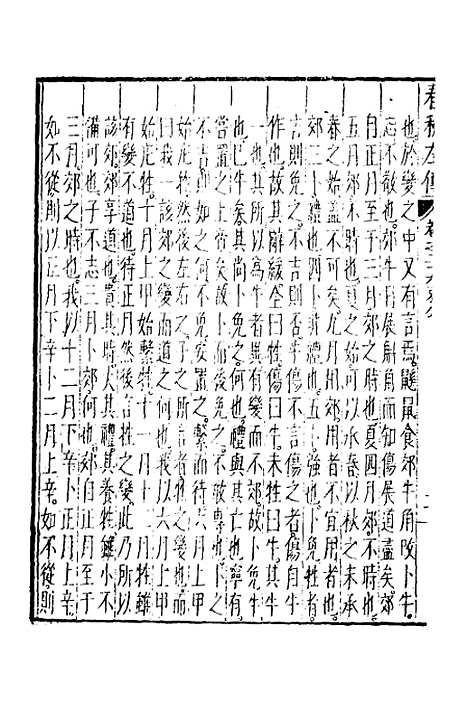 春秋左傳
也。於變之中又有言焉。鼷鼠食郊牛角改卜牛。
志不敬也。郊牛日展觓角而知傷展道盡矣。郊
自正月至于三月郊之時也。夏四月郊不時也。
五月郊不時也。夏之始可以承春以秋之末承
春之始蓋不可矣。九月用郊用者不宜用者也。
郊三卜禮也。四卜非禮也。五卜強也。卜免牲者
吉則免之。不吉則否。牛傷不言傷之者傷自牛
作也。故其辭緩。全曰牲傷曰牛。未牲曰牛。其牛
一也。其所以為牛者異。有變而不郊。故卜免牛
也。已牛矣。其尚卜免之。何也。禮與其亡也寧有。
嘗置之上帝矣。故卜而後免之。不敢專也。卜之
不吉則如之何。不免安置之。繫而待六月上甲
始庀牲。然後左右之。子之所言者牲之變也而
曰我一該郊之變而道之何也。我以六月上甲
始庀牲。十月上甲始繫牲。十一月十二月牲雖
有變不道也。待正月然後言牲之變此乃所以
該郊。郊享道也。貴其時。大其禮。其養牲雖小不
備可也。子不志三月卜郊何也。郊自正月至于
三月郊之時也。我以十二月下辛卜正月上辛
如不從則以正月下辛卜二月上辛。如不從則